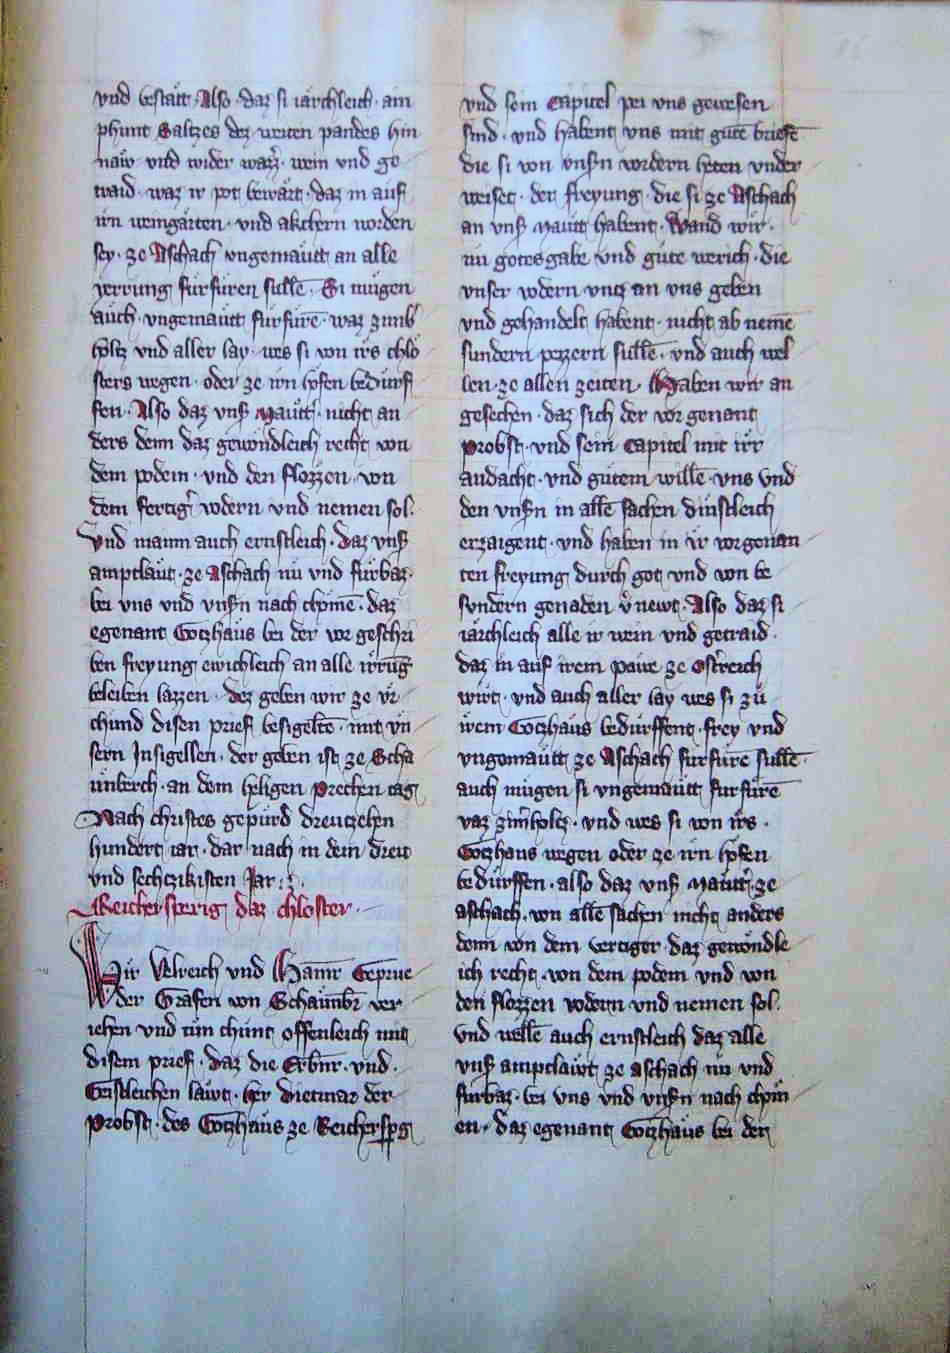 vnd bestätt · Also · daz si iärchleich · ain
phunt Saltzes dez weiten pandes hin
naw · vnd wider wartz · wein vnd ge
traid · waz ir pot bewärt · daz in auf
irn weingärten · vnd akchern worden
sey · ze Aschach vngemautt an alle
yerrung fürfüren sullē · Si mügen
auch · vngemautt fürfürē · waz zimb̄
holtz vnd aller lay · wes si von irs chlo
sters wegen · oder ze irn hofen bedürf
fen · Also daz vnsʼ Mautt̓ · nicht an
ders denn daz gewöndleich recht von
dem podem · vnd den flözzen · von
dem fertig̓ vodern vnd nemen sol ·
Vnd mainn auch ernstleich · daz vnsʼ
amptläut · ze Aschach nu vnd fürbaz ·
bei vns vnd vnsʼn nach chömē · daz
egenant Gotzhaus bei der vor geschri
ben freyung ewichleich an alle irrūg
beleiben lazzen · dez geben wir ze vr
chund disen prief besigeltē · mit vn
sern Insigellen · der geben ist ze Scha
unberch · an dem heligen Prechen tag
Nach christes gepürd dreutzehen
hundert iar · dar nach in dem dreu
vnd sechczikisten Jar ·
Reichersperig daz chloster ·
Wir Vlreich vnd Hainr̄ Geprue
der Grafen von Schaunbr̄ ver
iehen vnd tun chunt offenleich mit
disem prief · daz die Erbn̄r · vnd ·
Geistleichen läwt · her dietmar der
Probst · des Gotzhaus ze Reichersp̄g
vnd sein Capitel pei vns gewesen
sind · vnd habent vns mit gutē briefē
die si von vnsʼn vordern heten vnder
weiset · der freyung · die si ze Aschach
an vnsʼ Mautt habent · Wand wir ·
nu gotesgabe vnd gute werich · die
vnser vodern vntz an vns geben
vnd gehandelt habent · nicht ab nemē
sundern pezzern sullē · vnd auch wel
len · ze allen zeiten · Haben wir an
gesehen · daz sich der vor genant
Probst · vnd sein Capitel mit irr
andacht · vnd gutem willē · vns vnd
den vnsʼn in allē sachen dinstleich
erzaigent · vnd haben in ir vorgenan
ten freyung durch got vnd von be
sundern genaden v̓newt · Also daz si
iärchleich alle ir wein vnd getraid ·
daz in auf irem pawe ze Ost̓reich
wirt · vnd auch aller lay wes si zu
irem Gotzhaus bedürffent · frey vnd
vngemautt ze Aschach fürfürē sullē ·
auch mügen si vngemautt fürfürē
waz zim̄holtz · vnd wes si von irs ·
Gotzhaus wegen oder ze irn hofen
bedürffen · also daz vnsʼ Mautt̓ · ze
aschach · von allē sachen nicht anders
denn von dem vertiger · daz gewöndle
ich recht · von dem podem vnd von
den flözzen vodern vnd nemen sol ·
vnd wellē auch ernstleich daz alle
vnsʼ amptläwt ze aschach nu vnd
fürbaz · bei vns vnd vnsʼn nach chöm
en · daz egenant Gotzhaus bei der